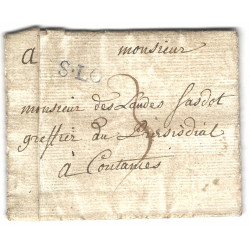 a monsieur
S·LO
monsieur des Landes Gasdot
greffier au Presiodial
3
à Coutances